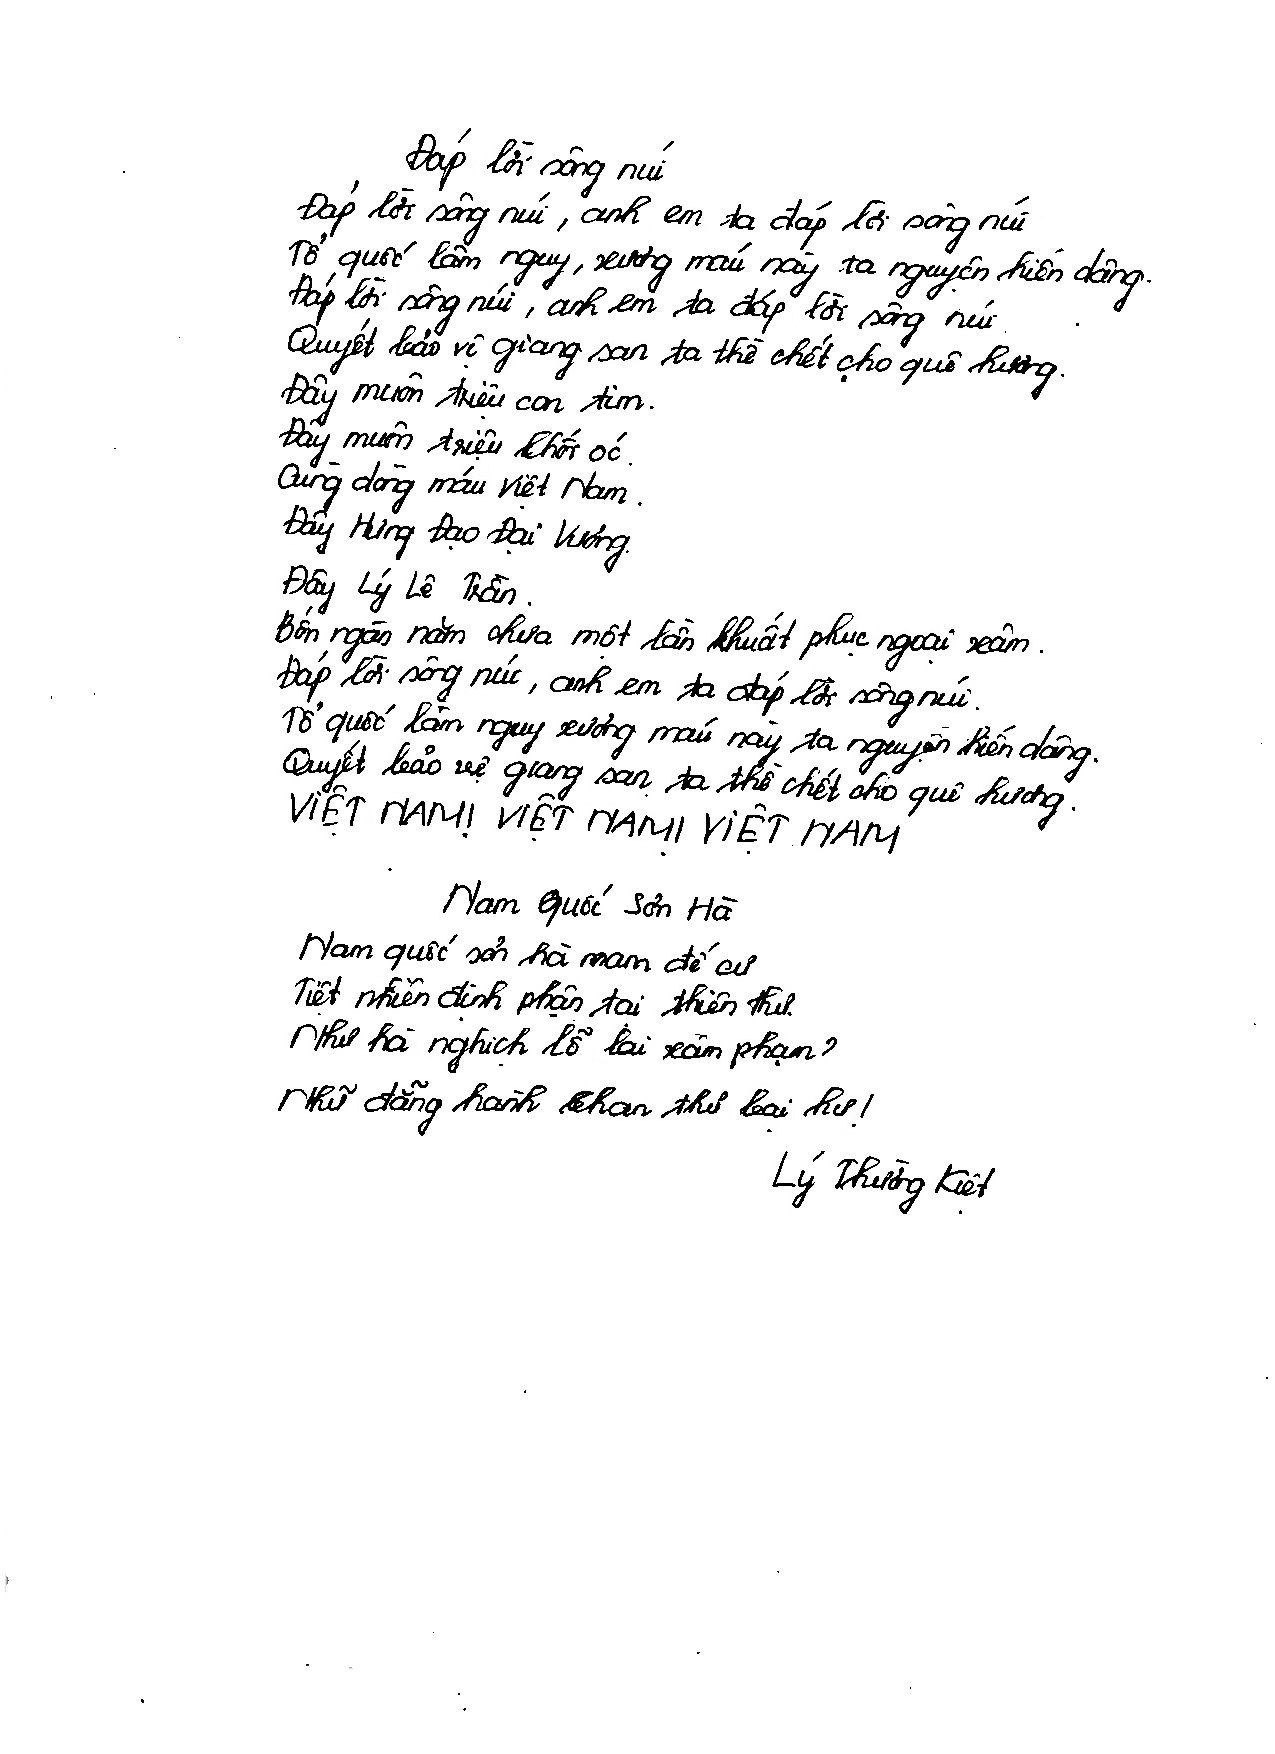 Đáp lời sông núi
Đáp lời sông núi, anh em ta đáp lời sông núi
Tổ quốc lâm nguy, xương máu này ta nguyện hiến dâng.
Đáp lời sông núi, anh em ta đáp lời sông núi
Quyết bảo vệ giang san ta thề chết cho quê hương.
Đây muôn triệu con tim.
Đây muôn triệu khối óc.
Cùng dòng máu Việt Nam.
Đây Hưng Đạo Đại Vương.
Đây Lý Lê Trần.
Bốn ngàn năm chưa một lần khuất phục ngoại xâm.
Đáp lời sông núi, anh em ta đáp lời sông núi.
Tổ quốc lâm nguy xương máu này ta nguyện hiến dâng.
Quyết bảo vệ giang san ta thề chết cho quê hương.
VIỆT NAM! VIỆT NAM! VIỆT NAM
Nam Quốc Sơn Hà
Nam quốc sơn hà nam đế cư
Tiệt nhiên định phận tại thiên thư.
Như hà nghịch lỗ lai xâm phạm?
Nhữ đẳng hành khan thư bại hư!
Lý Thường Kiệt